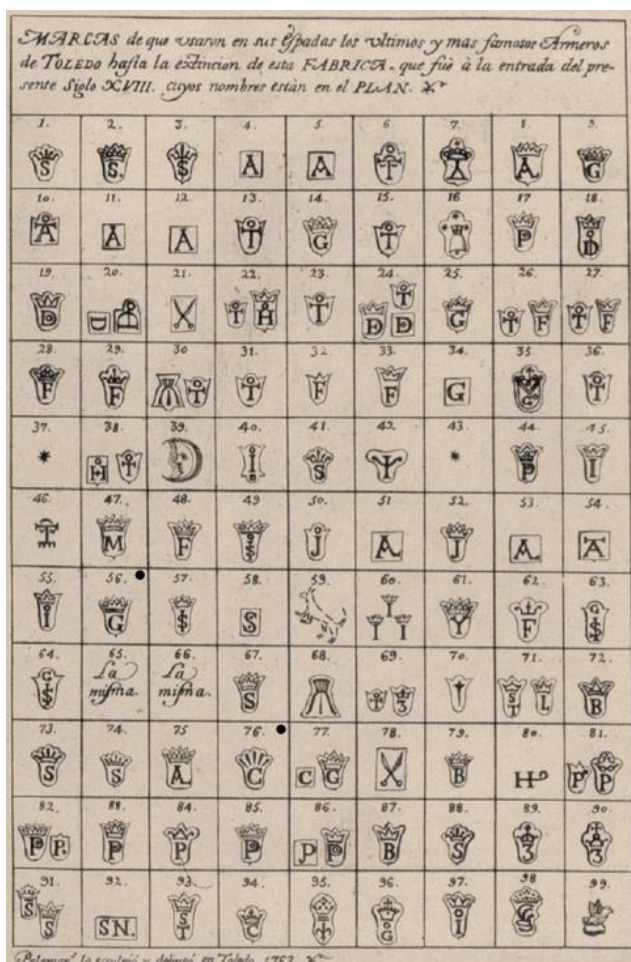 MARCAS de que vsaron en sus Espadas los vltimos y mas famosos Armeros
de TOLEDO hasta la extincion de esta FABRICA, que fuè à la entrada del pre-
sente Siglo XVIII. cuyos nombres están en el PLAN.
1. 2. 3. 4. 5. 6. 7. 8. 9.
S S. S A A T A A G
10. 11. 12. 13. 14. 15. 16 17 18.
A A A T G T P D
19. 20. 21. 22. 23. 24. 25. 26. 27.
D D T H T D T D G T F T F
28. 29. 30 31. 32 33. 34. 35. 36.
F F T T F F G G T
37. 38. 39. 40. 41. 42. 43. 44. 45.
* H T I S * P I
46. 47. 48. 49 50. 51 52. 53. 54.
T M F S J A J A A
55. 56. 57. 58. 59. 60. 61. 62. 63.
I G S S T T I Y F G S
64. 65. 66. 67. 68. 69. 70. 71. 72.
G S La La S T 3 ST L B
misma. misma.
73. 74. 75 76. 77. 78. 79. 80. 81.
S S A C C G B H P P
82. 88. 84. 85. 86. 87. 88. 89. 90.
P P. P P P P P B S 3 3
91. 92. 93. 94. 95. 96. 97. 98 99.
S S SN. ST C G I G
lo esculpió y delineó en Toledo. 1762.